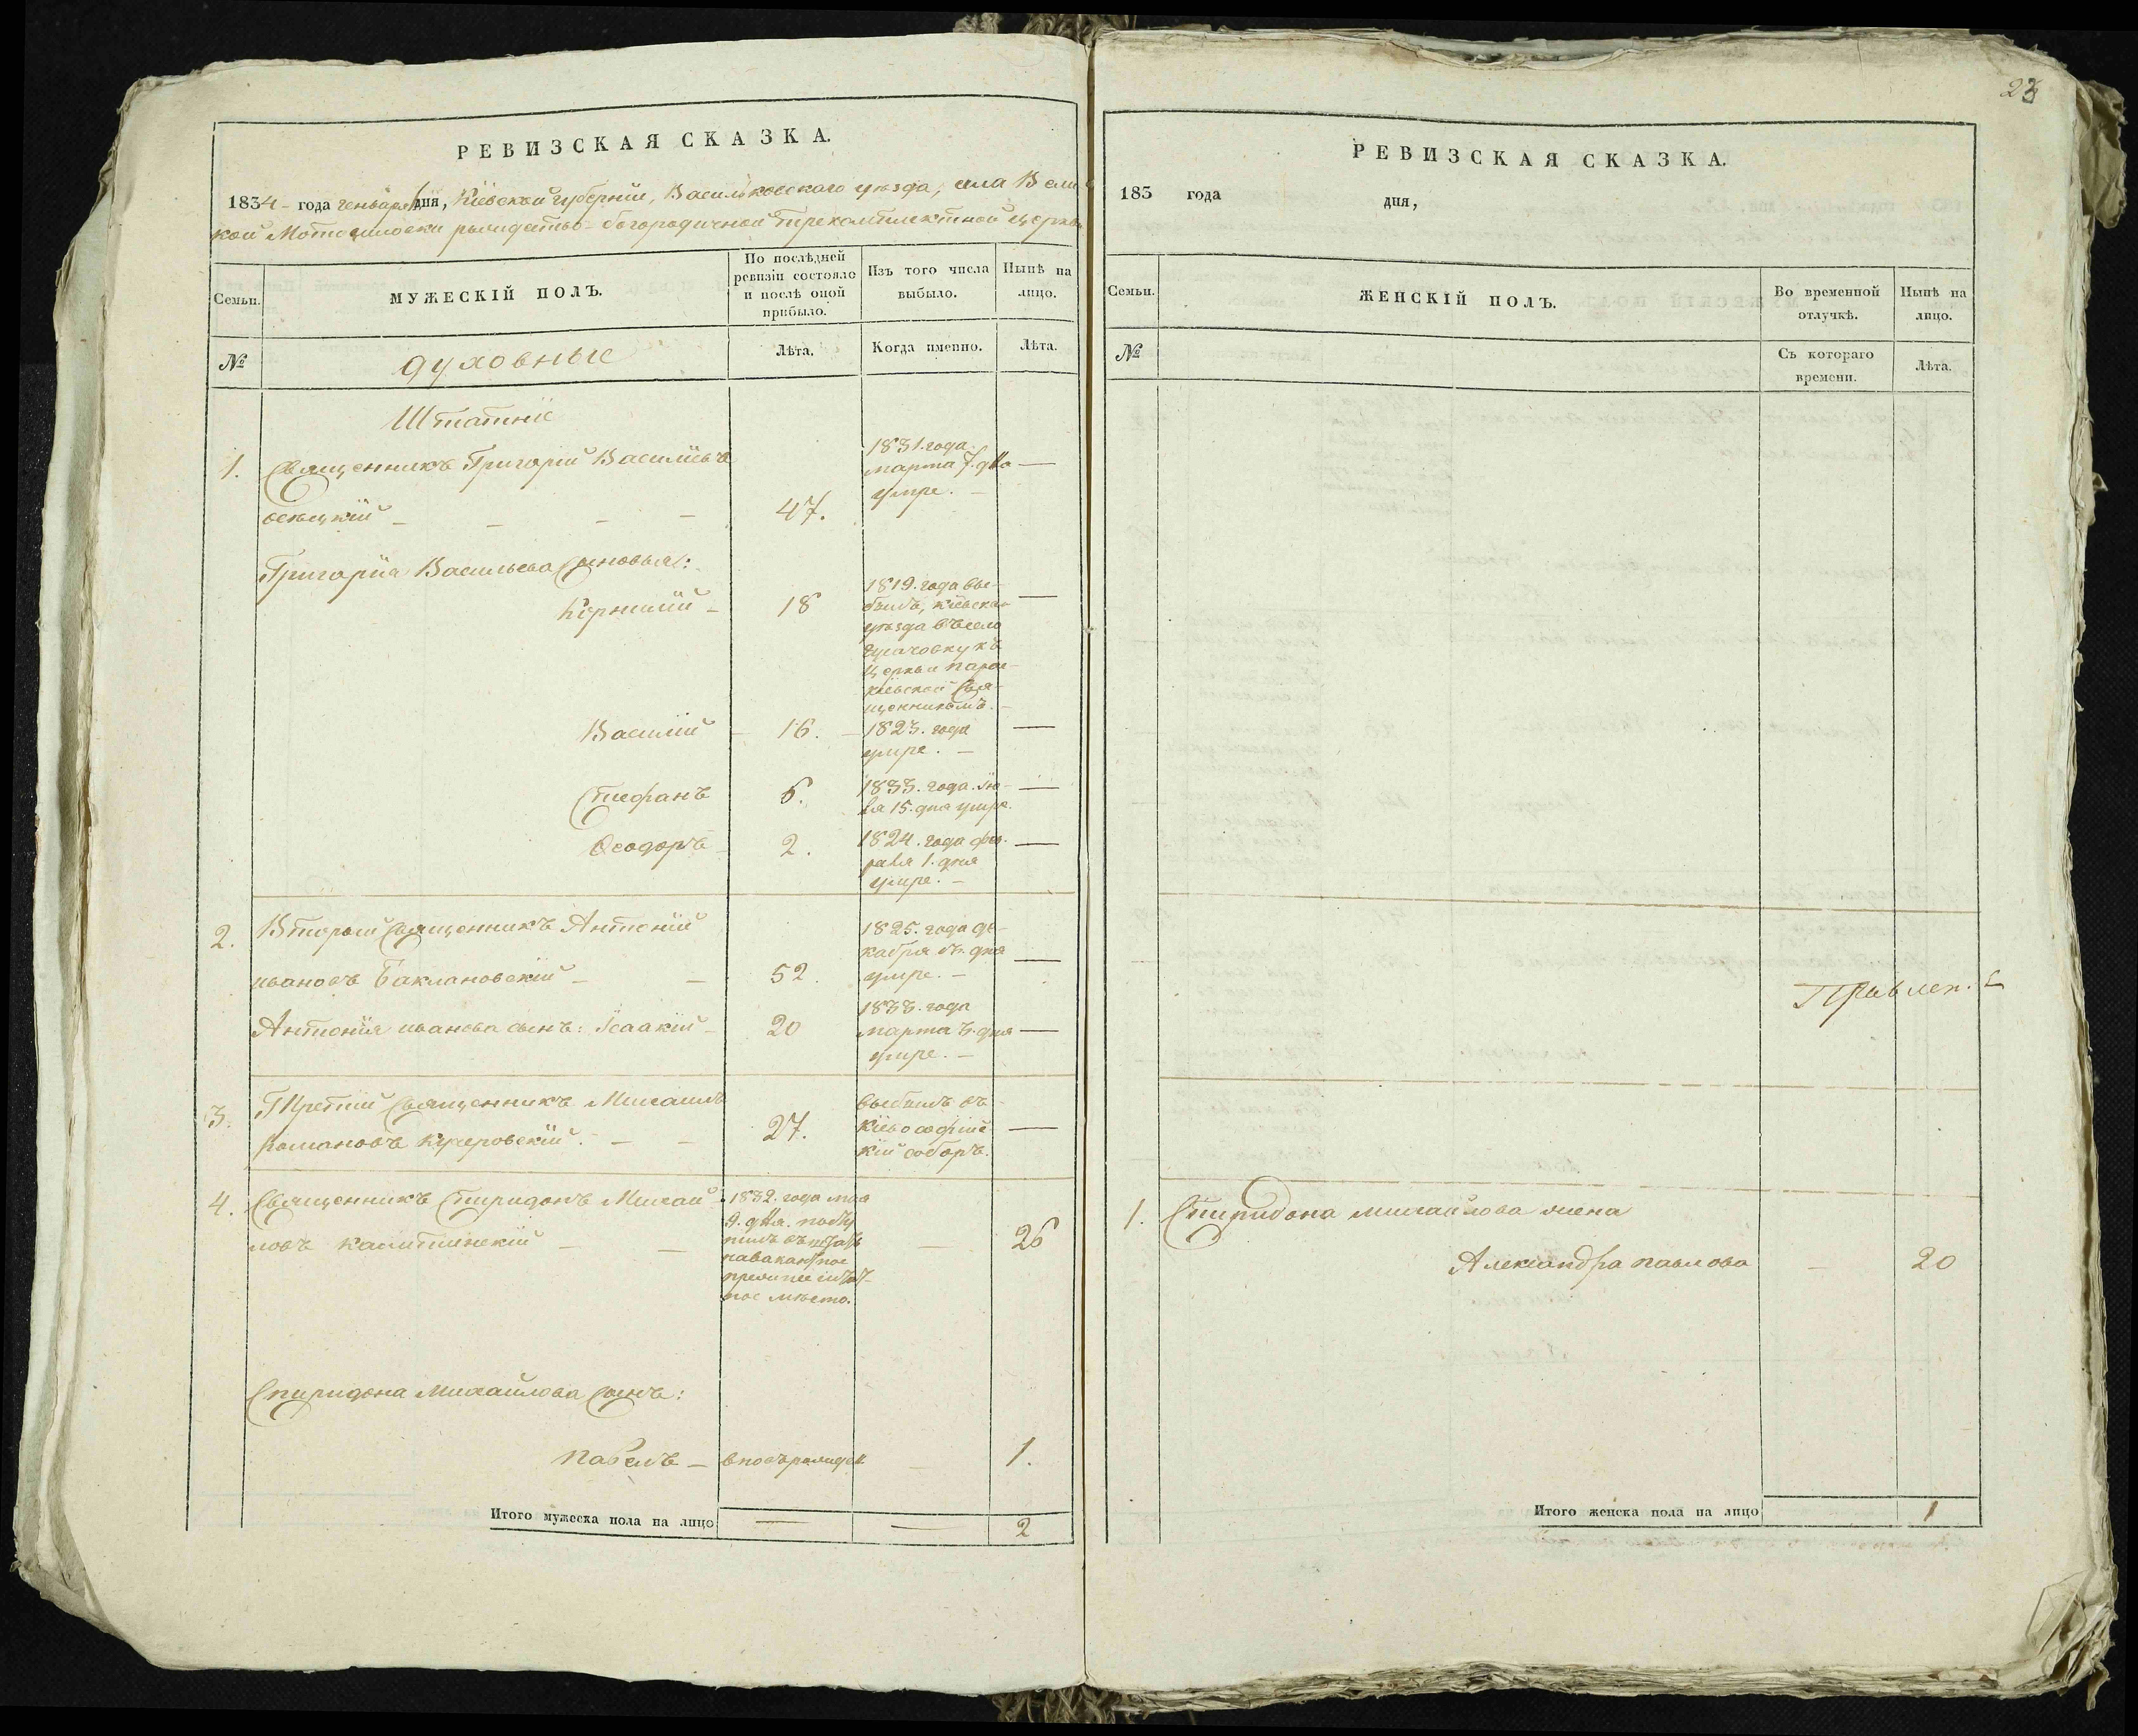 РЕВИЗСКАЯ СКАЗКА.
1834 года генваря дня, Кіевской губерніи, Васильковскаго уѣзда, села Вели
кой Мотовиловки рождество-богородичной трекомплектной церкви
Семьи.
МУЖЕСКІЙ ПОЛЪ.
По послѣдней ревизіи состояло и послѣ оной прибыло.
Изъ того числа выбыло.
Нынѣ на лицо.
№
духовные
Лѣта.
Когда именно.
Лѣта.
Штатніе
1. Священникъ Григорій Василіевъ
сѣнецкій 47.
1831. года
марта 7. дня
умре.
Григорія Васильева сыновья:
Корнилій 18
1819. года вы-
былъ, кіевска-
уѣзда въ село
къ
церкви парас-
кіевской свя-
щенникомъ.
Василій 16.
1823. года
умре.
Стефанъ 6.
1833. года
15. дня умре.
Ѳеодоръ 2.
1824. года фев-
раля 1. дня
умре.
2. Вторый священникъ Антоній
ивановъ Баклановскій 52.
1825. года де-
кабря дня
умре.
Антонія иванова сынъ: Ісаакій 20
1833. года
марта 3. дня
умре.
3. Третій священникъ Михаилъ
Романовъ Кучеровскій. 27.
выбылъ въ
кіево софійс
кій соборъ.
4. Священникъ Спиридонъ Михай
ловъ Капитинскій 26
1832. года мая
9. дня. посту
пилъ въ штатъ
на вакантное
место.
Спиридона Михайлова сынъ:
Павелъ вновьрожден 1.
Итого мужеска пола на лицо 2
23
РЕВИЗСКАЯ СКАЗКА.
183 года дня,
Семьи.
ЖЕНСКІЙ ПОЛЪ.
Во временной отлучкѣ.
Нынѣ на лицо.
№
Съ котораго времени.
Лѣта.
1. Спиридона михайлова жена
Александра павлова 20
Итого женска пола на лицо 1